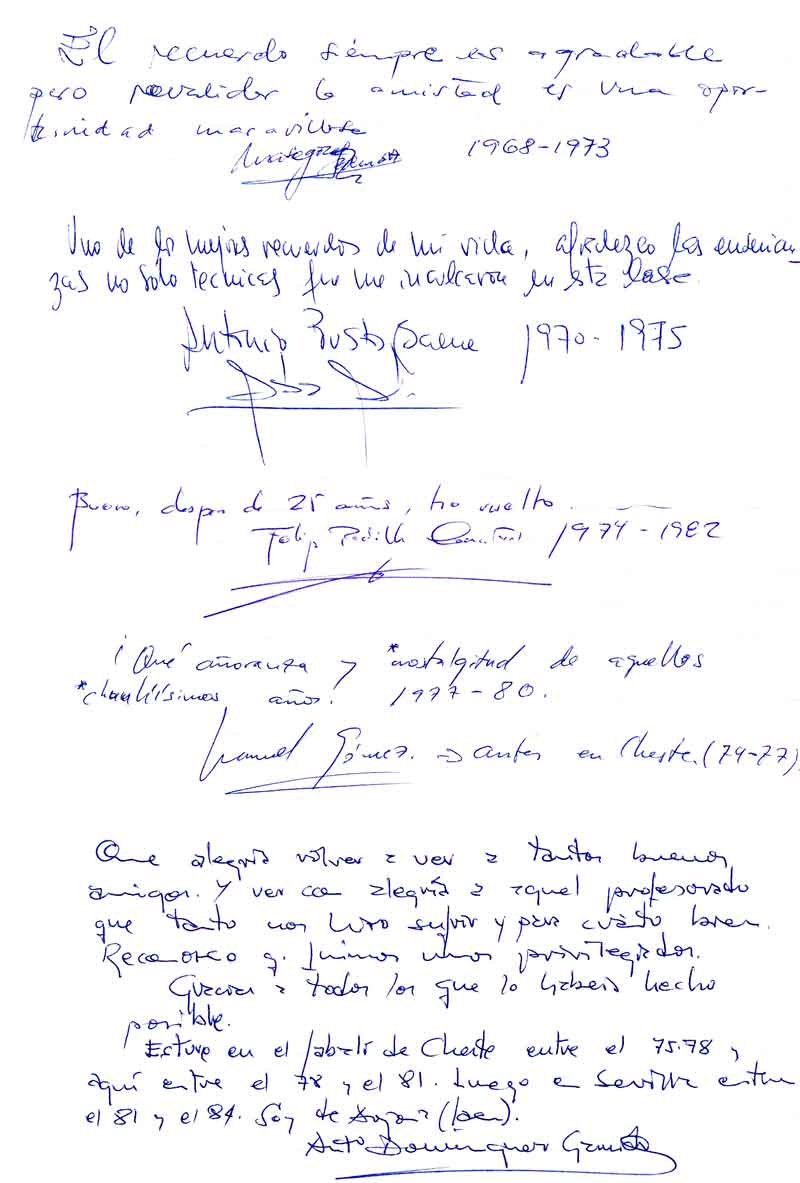 El recuerdo siempre es agradable
pero revalidar la amistad es una opor-
tunidad maravillosa
1968-1973
Uno de los mejores recuerdos de mi vida, agradezco las enseñan-
zas no solo tecnicas que me inculcaron en esta clase.
Antonio Bustos 1970-1975
Bueno, despues de 25 años, he vuelto.
Felipe Padilla 1974-1982
¡Qué añoranza y *nostalgitud de aquellos
*chuulísimos años! 1977-80.
Manuel Gómez. → antes en Cheste. (74-77).
Que alegría volver a ver a tantos buenos
amigos. Y ver con alegría a aquel profesorado
que tanto nos hizo sufrir y para cuánto bien.
Reconozco q. fuimos unos privilegiados.
Gracias a todos los que lo habeis hecho
posible.
Estuve en el Jabalí de Cheste entre el 75-78 y
aquí entre el 78 y el 81. Luego en Sevilla entre
el 81 y el 84. Soy de (Jaen).
Antº Dominguez